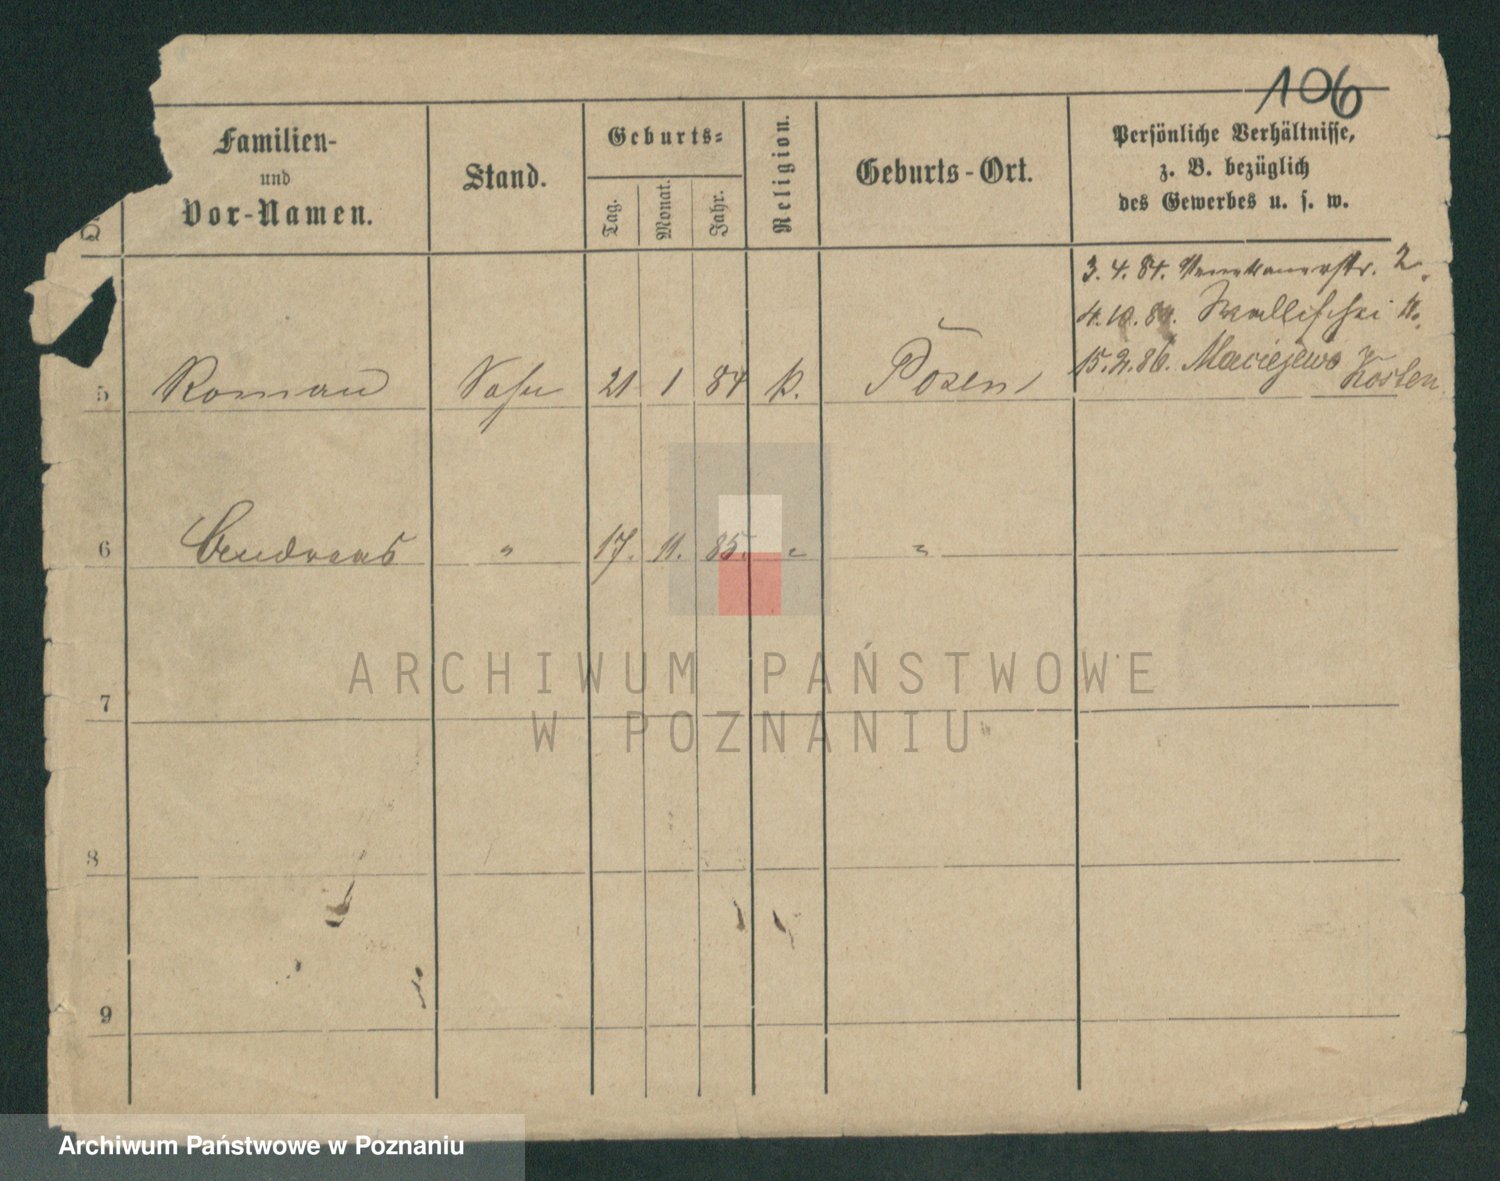 106
Familien-
und
Vor-Namen.
Stand.
Geburts-
Tag.
Monat.
Jahr.
Religion.
Geburts-Ort.
Persönliche Verhältnisse,
z. B. bezüglich
des Gewerbes u. s. w.
3. 4. 84. 2.
4. 10. 84. Wallischei 11.
15. 2. 86. Maciejewo
Kosten
5 Roman Sohn 21 1 84 k. Posen
6 Andreas " 17. 11. 85. " "
7
8
9
ARCHIWUM PAŃSTWOWE
W POZNANIU
Archiwum Państwowe w Poznaniu